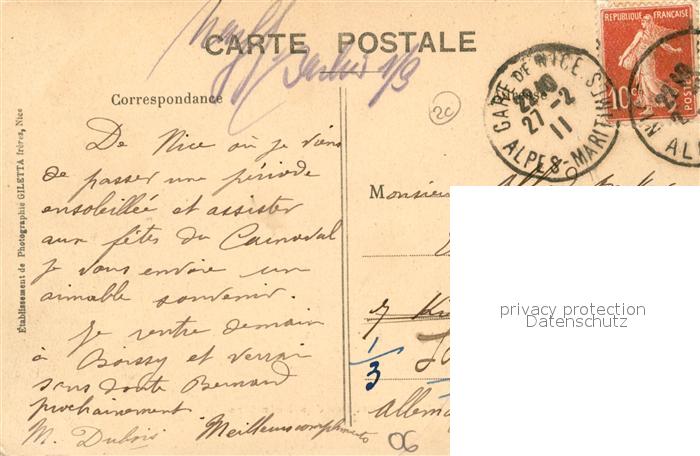 CARTE POSTALE
Berlin 1/3
RÉPUBLIQUE FRANÇAISE
10 c
POSTES
GARE DE NICE
ALPES-MARITIMES
22 40
27 -2
11
Correspondance
2C
Établissement de Photographie GILETTA frères, Nice
De Nice où je viens
de passer une période
ensoleillée et assister
aux fêtes du Carnaval
je vous envoie un
aimable souvenir.
Je rentre demain
à Boissy et verrai
sans doute Bernard
prochainement.
M. Dubois Meilleurs compliments
Monsieur
1/3
06
privacy protection
Datenschutz